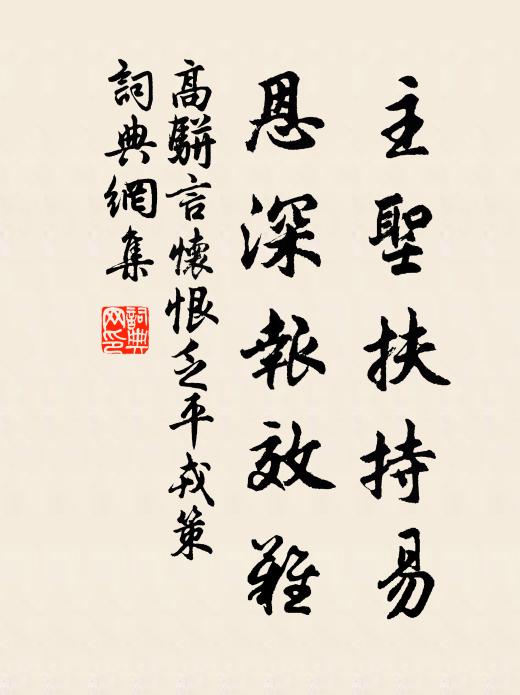 主聖扶持易
恩深報效難
高駢言懷恨乏平戎策
詞典網集
詞典
网印